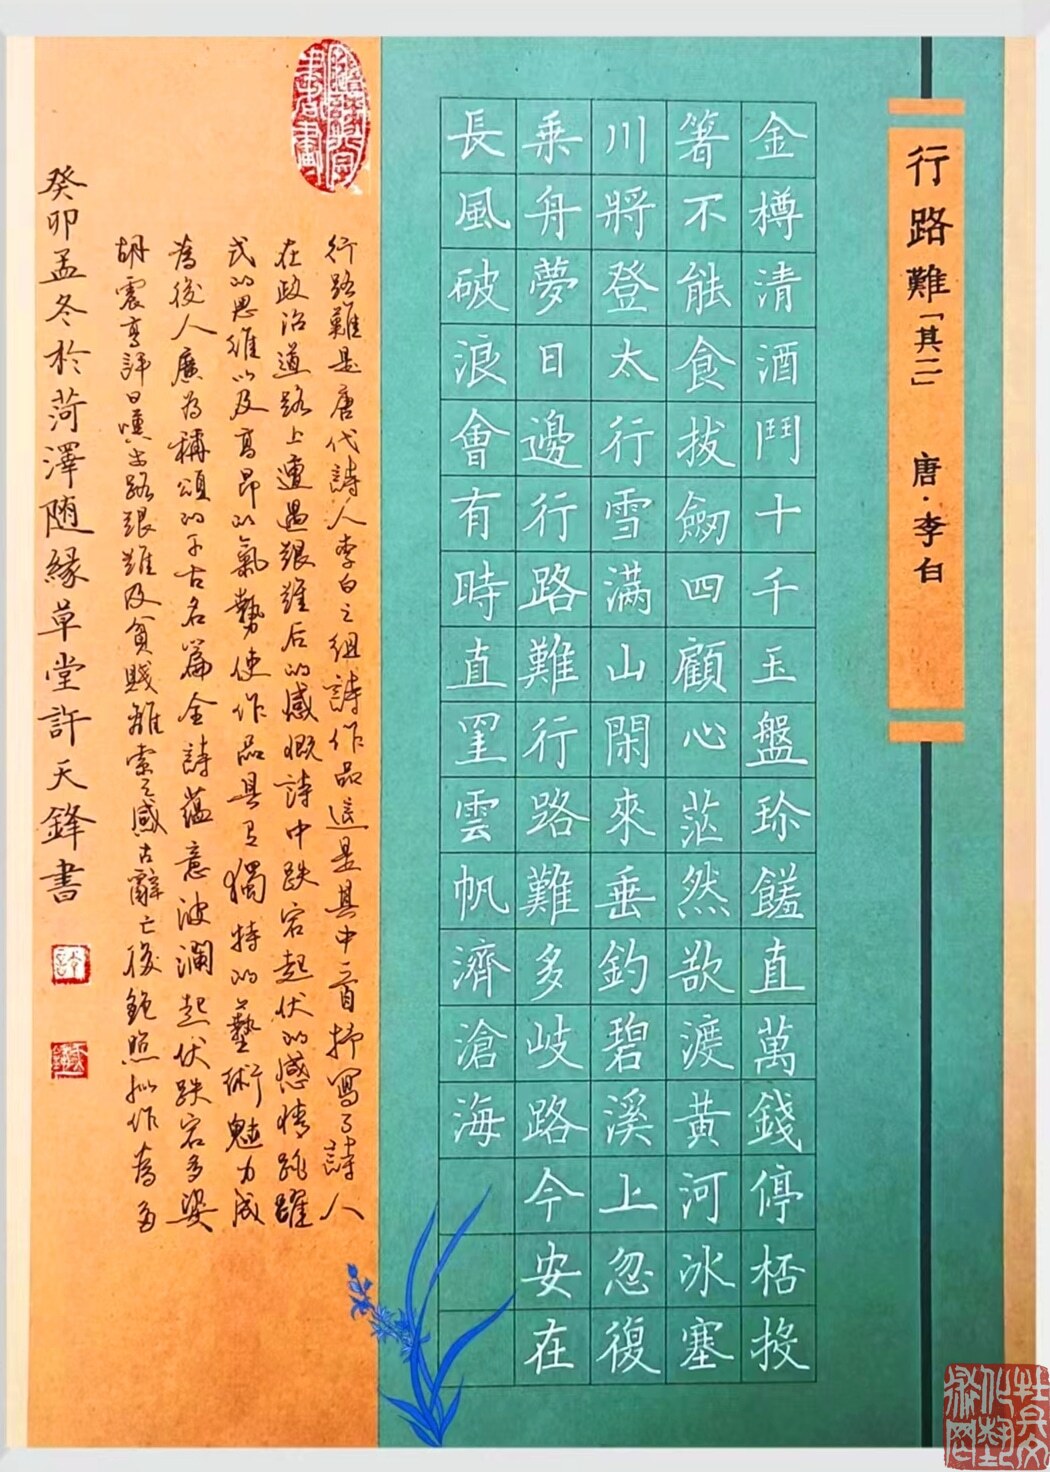 行路難「其二」 唐·李白
金樽清酒鬥十千玉盤珍饈直萬錢停桮投
箸不能食拔劒四顧心茫然欲渡黃河冰塞
川將登太行雪滿山閑來垂釣碧溪上忽復
乘舟夢日邊行路難行路難多岐路今安在
長風破浪會有時直罣雲帆濟滄海
行路難是唐代詩人李白之組詩作品這是其中一首抒寫了詩人
在政治道路上遭遇艱難后的感慨詩中跌宕起伏的感情跳躍
式的思維以及高昂的氣勢使作品具有獨特的藝術魅力成
為後人廣為稱頌的千古名篇全詩蘊意波瀾起伏跌宕多姿
胡震亨評曰嘆世路艱難及貧賤離索之感古辭亡後鮑照擬作為多
癸卯孟冬於菏澤随緣草堂許天鋒書